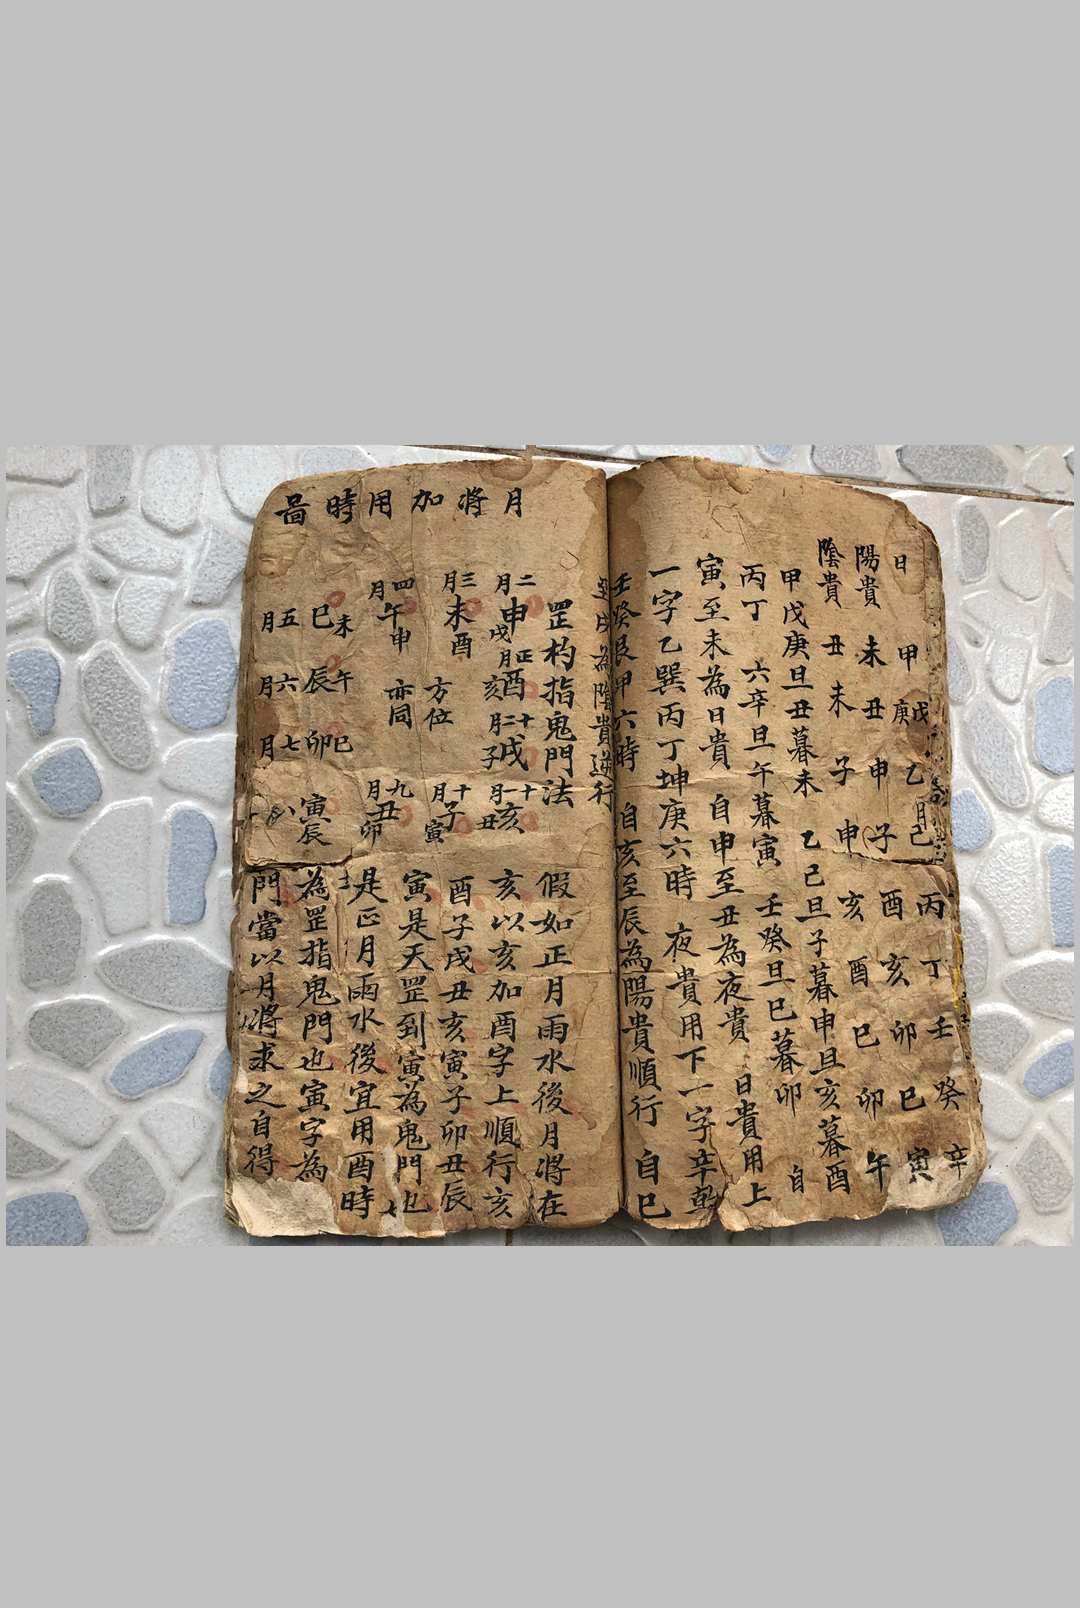 日 甲 戊庚 乙 己 丙丁 壬癸 辛
陽貴 未 丑 申 子 酉 亥 卯 巳 寅
陰貴 丑 未 子 申 亥 酉 巳 卯 午
甲戊庚旦丑暮未 乙己旦子暮申旦亥暮酉
丙丁 六辛旦午暮寅 壬癸旦巳暮卯 自
寅至未為日貴 自申至丑為夜貴 日貴用上
一字乙巽丙丁坤庚六時 夜貴用下一字辛乾
壬癸艮甲六時 自亥至辰為陽貴順行 自巳
至戌為陰貴逆行
月將加用時啚
罡杓指鬼門法
二月 申戌
正月 酉亥
十二月 戌子
十一月 亥丑
三月 未酉
方位
十月 子寅
四月 午申
亦同
九月 丑卯
巳未 五月
辰午 六月
卯巳 七月
寅辰 八
假如正月雨水後月將在
亥以亥加酉字上順行亥
酉子戌丑亥寅子卯丑辰
寅是天罡到寅為鬼門也
是正月雨水後宜用酉時
為罡指鬼門也寅字為
門當以月將求之自得